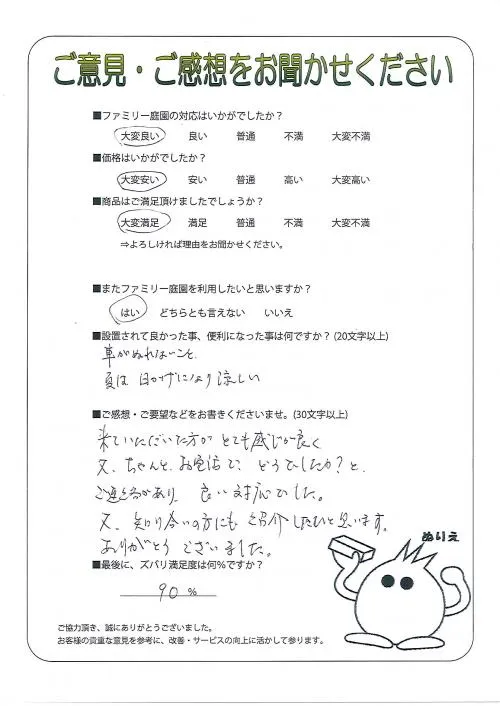 ご意見・ご感想をお聞かせください
■ファミリー庭園の対応はいかがでしたか？
大変良い 良い 普通 不満 大変不満
■価格はいかがでしたか？
大変安い 安い 普通 高い 大変高い
■商品はご満足頂けましたでしょうか？
大変満足 満足 普通 不満 大変不満
⇒よろしければ理由をお聞かせください。
■またファミリー庭園を利用したいと思いますか？
はい どちらとも言えない いいえ
■設置されて良かった事、便利になった事は何ですか？(20文字以上)
車がぬれないこと、
夏は 日かげになり涼しい
■ご感想・ご要望などをお書きくださいませ。(30文字以上)
来ていただいた方が とても感じが良く
又、ちゃんと お電話で、どうでしたか？と、
ご連絡があり、良い対応でした。
又、知り合いの方にも 紹介したいと思います。
ありがとう ございました。
■最後に、ズバリ満足度は何%ですか？
90 %
ぬりえ
ご協力頂き、誠にありがとうございました。
お客様の貴重な意見を参考に、改善・サービスの向上に活かして参ります。